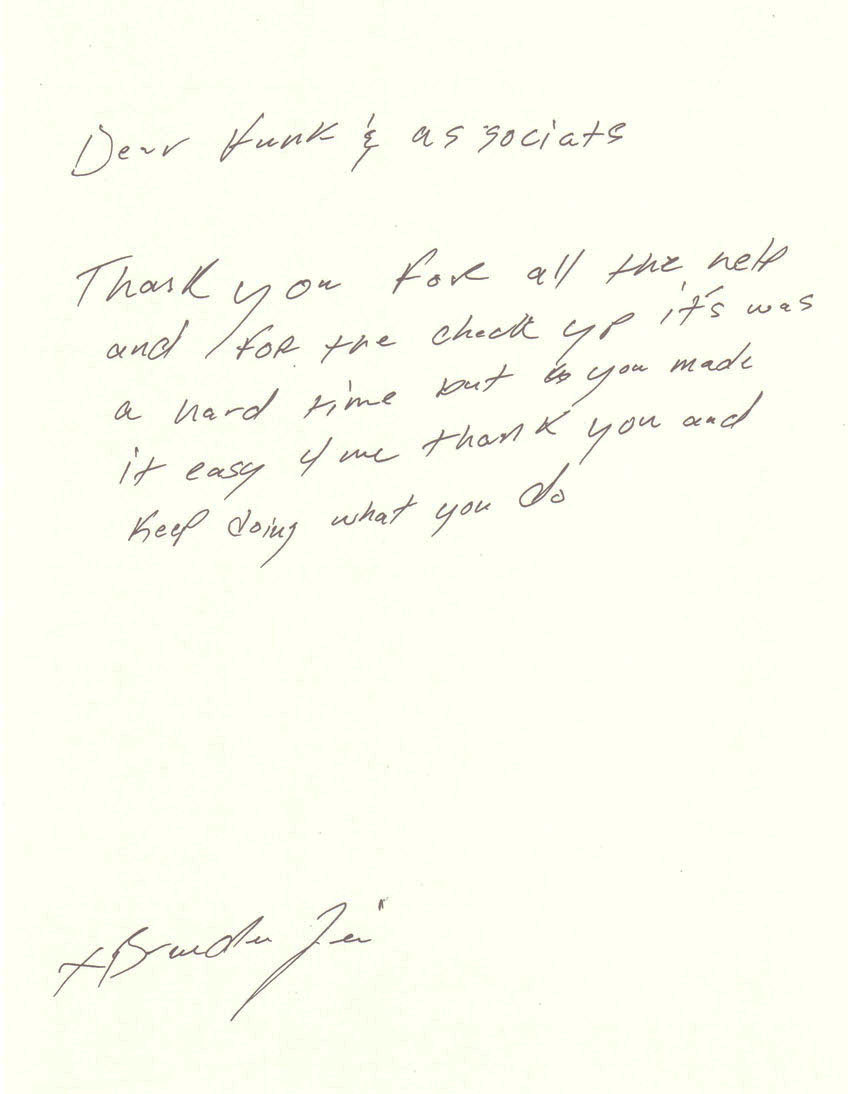 Dear Funk & associats
Thank you for all the help
and for the check up it's was
a hard time but you made
it easy 4 me thank you and
keep doing what you do